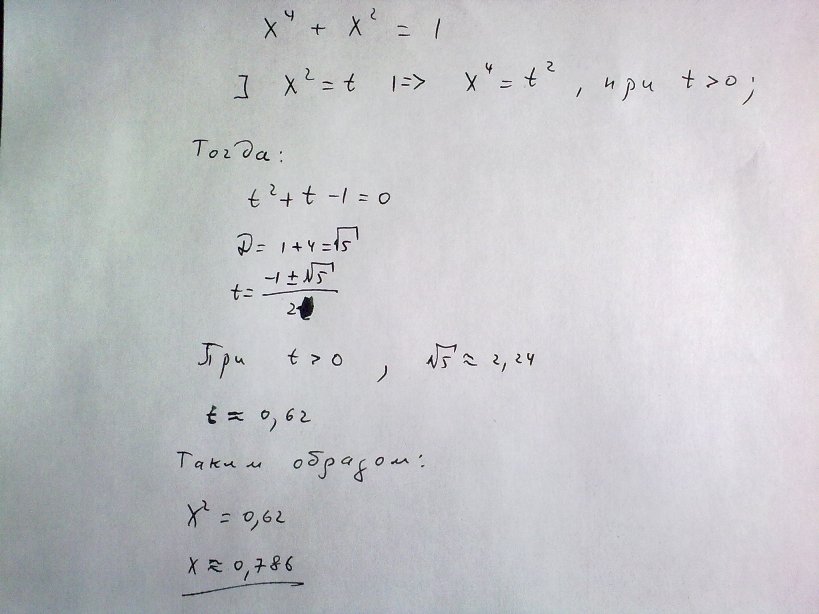 x⁴ + x² = 1
] x² = t |=> x⁴ = t², при t > 0;
Тогда:
t² + t - 1 = 0
D = 1 + 4 = √5
t = (-1 ± √5) / 2
При t > 0, √5 ≈ 2,24
t ≈ 0,62
Таким образом:
x² = 0,62
x ≈ 0,786